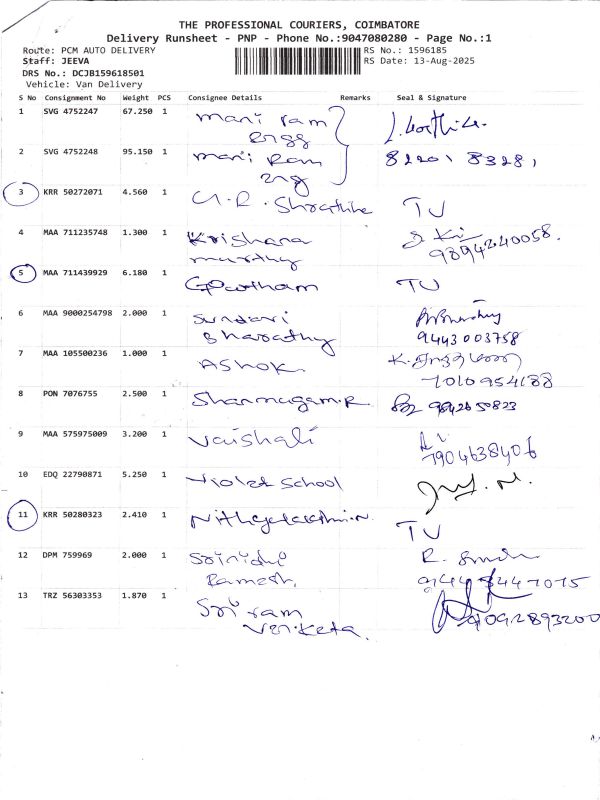 THE PROFESSIONAL COURIERS, COIMBATORE
Delivery Runsheet - PNP - Phone No.:9047080280 - Page No.:1
Route: PCM AUTO DELIVERY
RS No.: 1596185
Staff: JEEVA
RS Date: 13-Aug-2025
DRS No.: DCJB159618501
Vehicle: Van Delivery
S No Consignment No Weight PCS Consignee Details Remarks Seal & Signature
1 SVG 4752247 67.250 1 mani ram
engg
2 SVG 4752248 95.150 1 mani Ram 82201 83281
eng
3 KRR 50272071 4.560 1 TU
4 MAA 711235748 1.300 1 Krishana
murthy 9894240058.
5 MAA 711439929 6.180 1 Gowtham TU
6 MAA 9000254798 2.000 1 Sundari
Bharathy 9443003758
7 MAA 105500236 1.000 1 ASHOK
7010954188
8 PON 7076755 2.500 1 Shanmugam.R 9842650823
9 MAA 575975009 3.200 1 Vaishali
7904638406
10 EDQ 22790871 5.250 1 Violet School
11 KRR 50280323 2.410 1 TU
12 DPM 759969 2.000 1 Srinidhi
Ramesh.
13 TRZ 56303353 1.870 1 Sri ram
Venketa. 9092893200